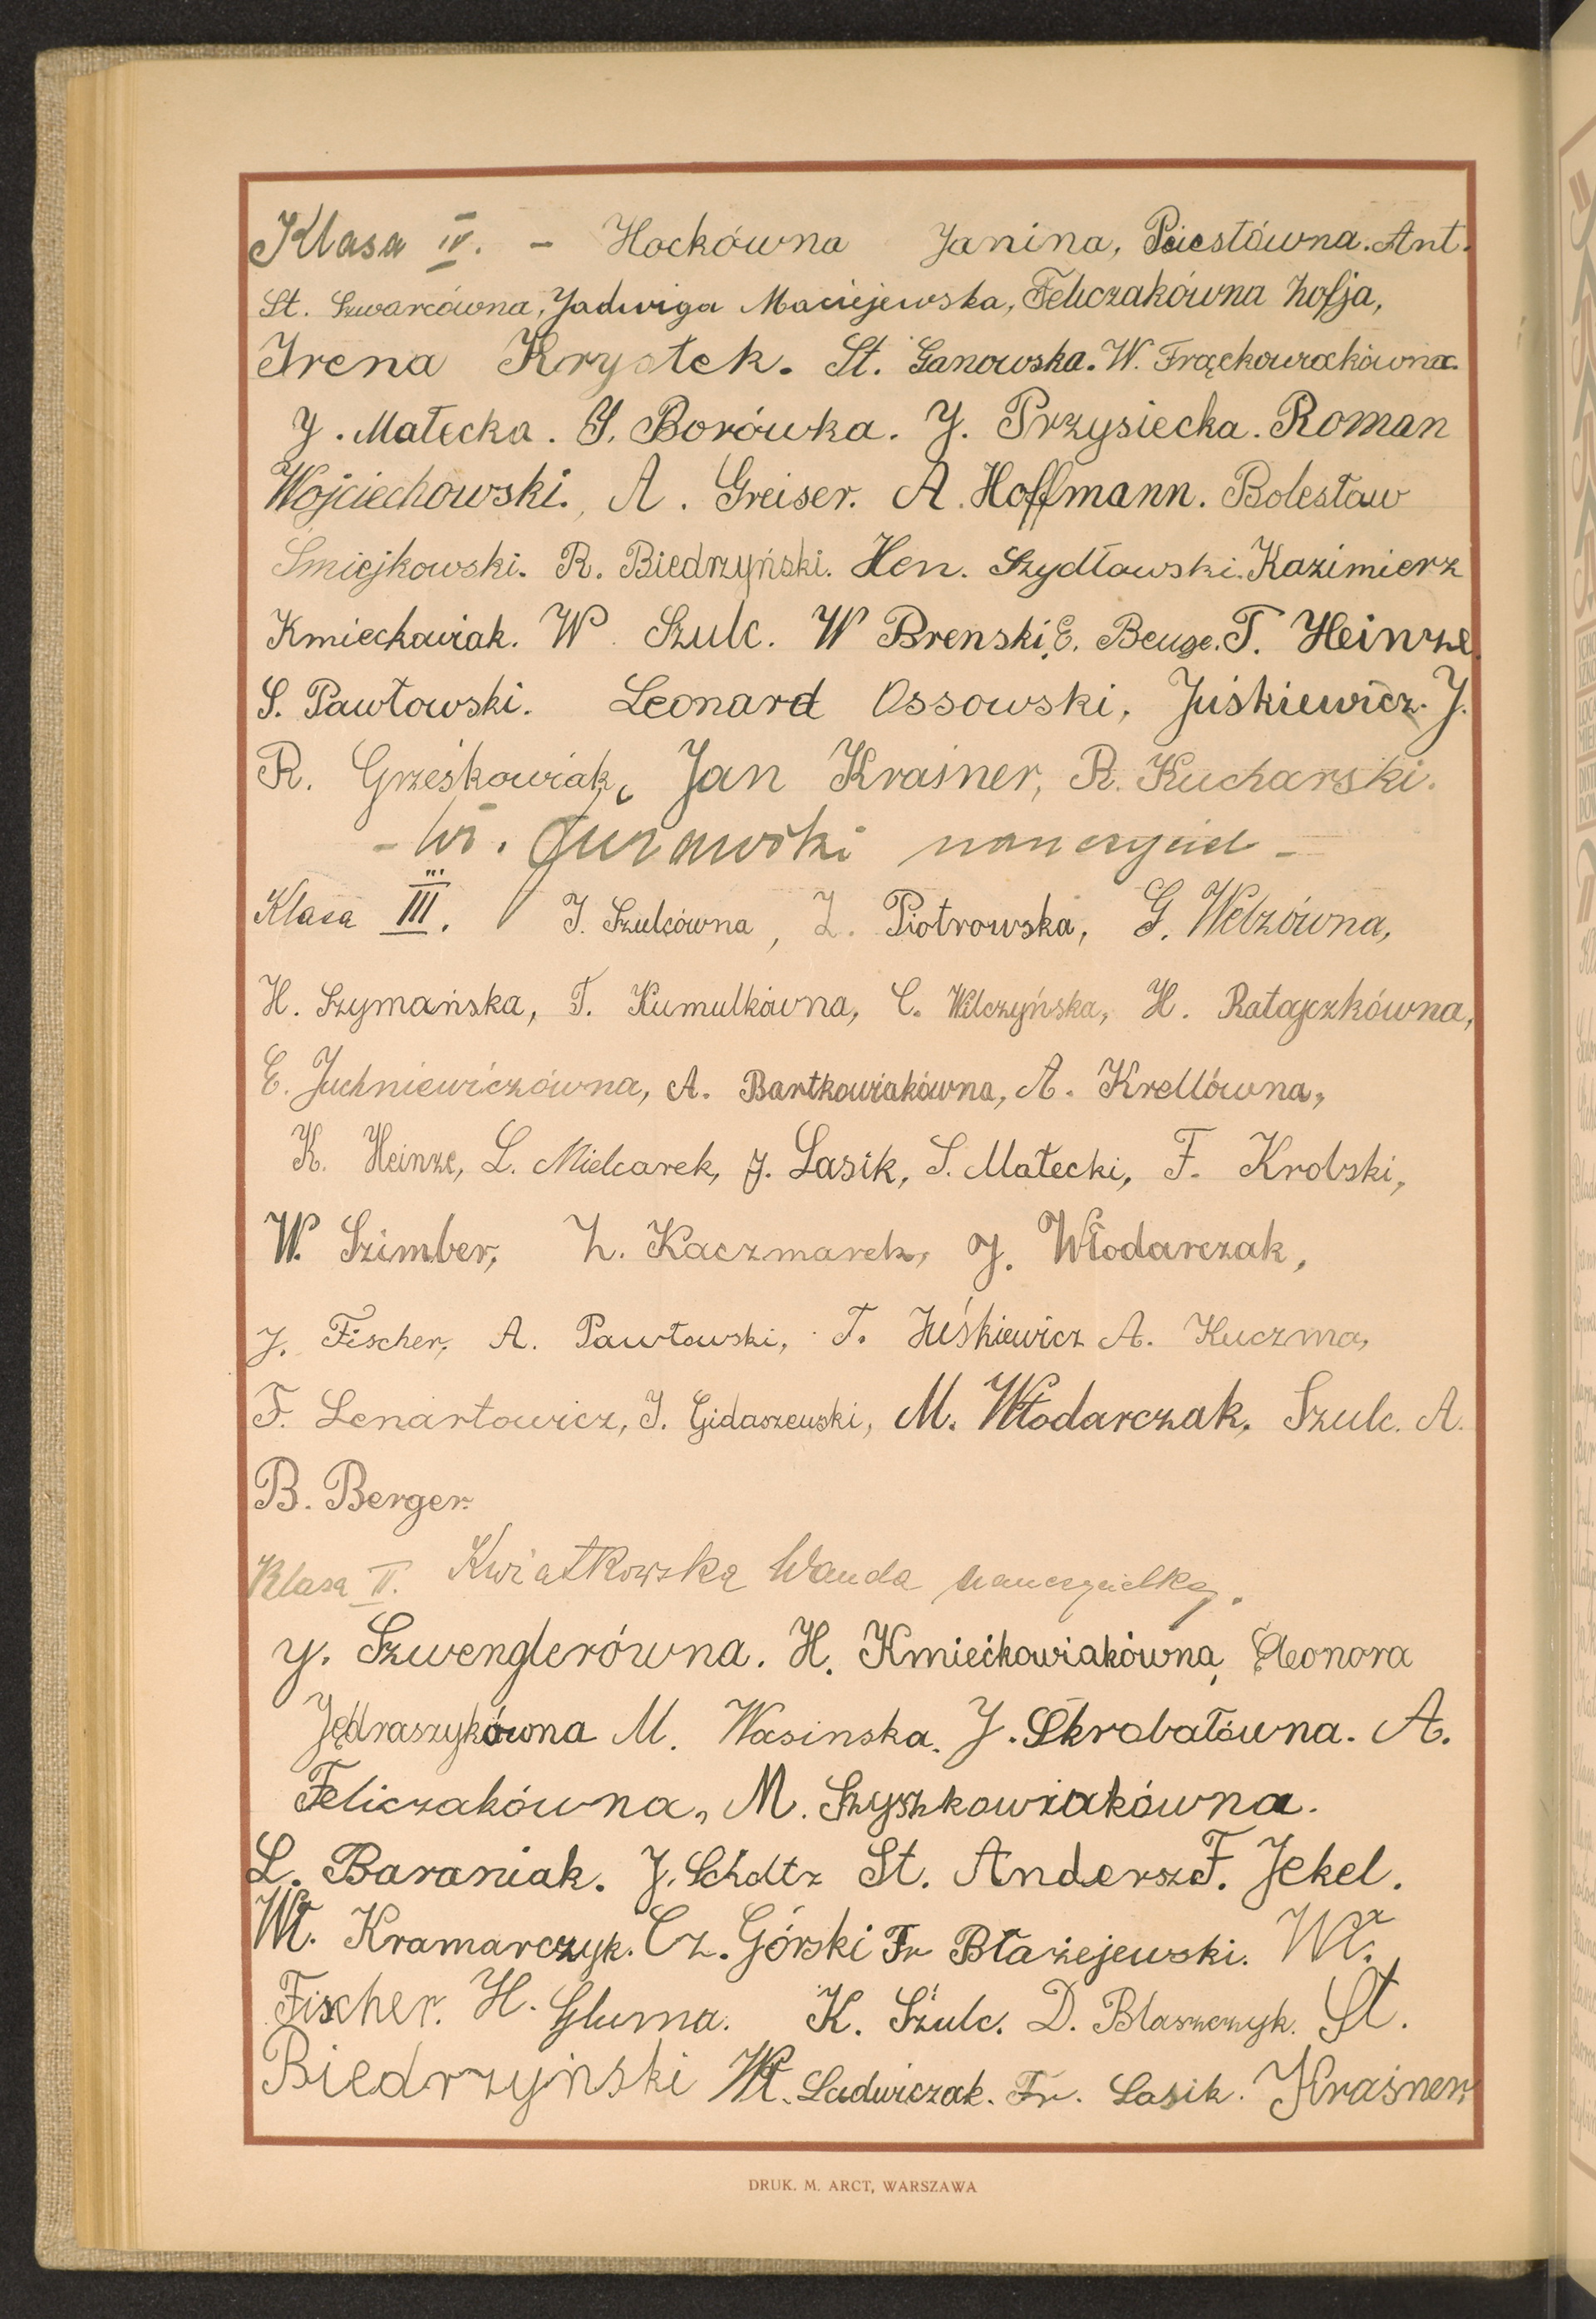 Klasa IV. - Hockówna Janina, Piestówna. Ant.
St. Szwarcówna, Jadwiga Maciejewska, Feliczakówna Zofja,
Irena Krystek. St. Ganowska. W. Frąckowiakówna.
J. Małecka. S. Borówka. J. Przysiecka. Roman
Wojciechowski. A. Greiser. A. Hoffmann. Bolesław
Smiejkowski. R. Biedrzyński. Hen. Szydłowski. Kazimierz
Kmieckowiak. W. Szulc. W Brenski, E. Beuge. T. Heinze.
S. Pawłowski. Leonard Ossowski, Juśkiewicz. J.
R. Grześkowiak, Jan Kraśner, R. Kucharski.
- Wł. Żurawski nauczyciel -
Klasa III. J. Szulcówna, Z. Piotrowska, G. Welzówna,
H. Szymańska, T. Kumulkówna, C. Wilczyńska, H. Ratajczkówna,
E. Juchniewiczówna, A. Bartkowiakówna, A. Krellówna,
K. Heinze, L. Mielcarek, J. Lasik, S. Małecki, F. Krobski,
W. Szimber, Z. Kaczmarek, J. Włodarczak,
J. Fischer, A. Pawłowski, T. Juśkiewicz A. Kuczma,
F. Lenartowicz, J. Gidaszewski, M. Włodarczak, Szulc. A.
B. Berger.
Klasa II. Kwiatkowska Wanda nauczycielka.
J. Szwenglerówna. H. Kmiećkowiakówna, Eleonora
Jędraszykówna M. Wasinska. J. Skrobałówna. A.
Feliczakówna, M. Szyszkowiakówna.
L. Baraniak. J. Scholtz St. Andersz F. Jekel.
Wł. Kramarczyk. Cz. Górski Fr Błażejewski. Wł.
Fischer. H. Gluma. K. Szulc. D. Blaszczyk. St.
Biedrzyński Wł. Ludwiczak. Fr. Lasik. Kraśner
DRUK. M. ARCT, WARSZAWA